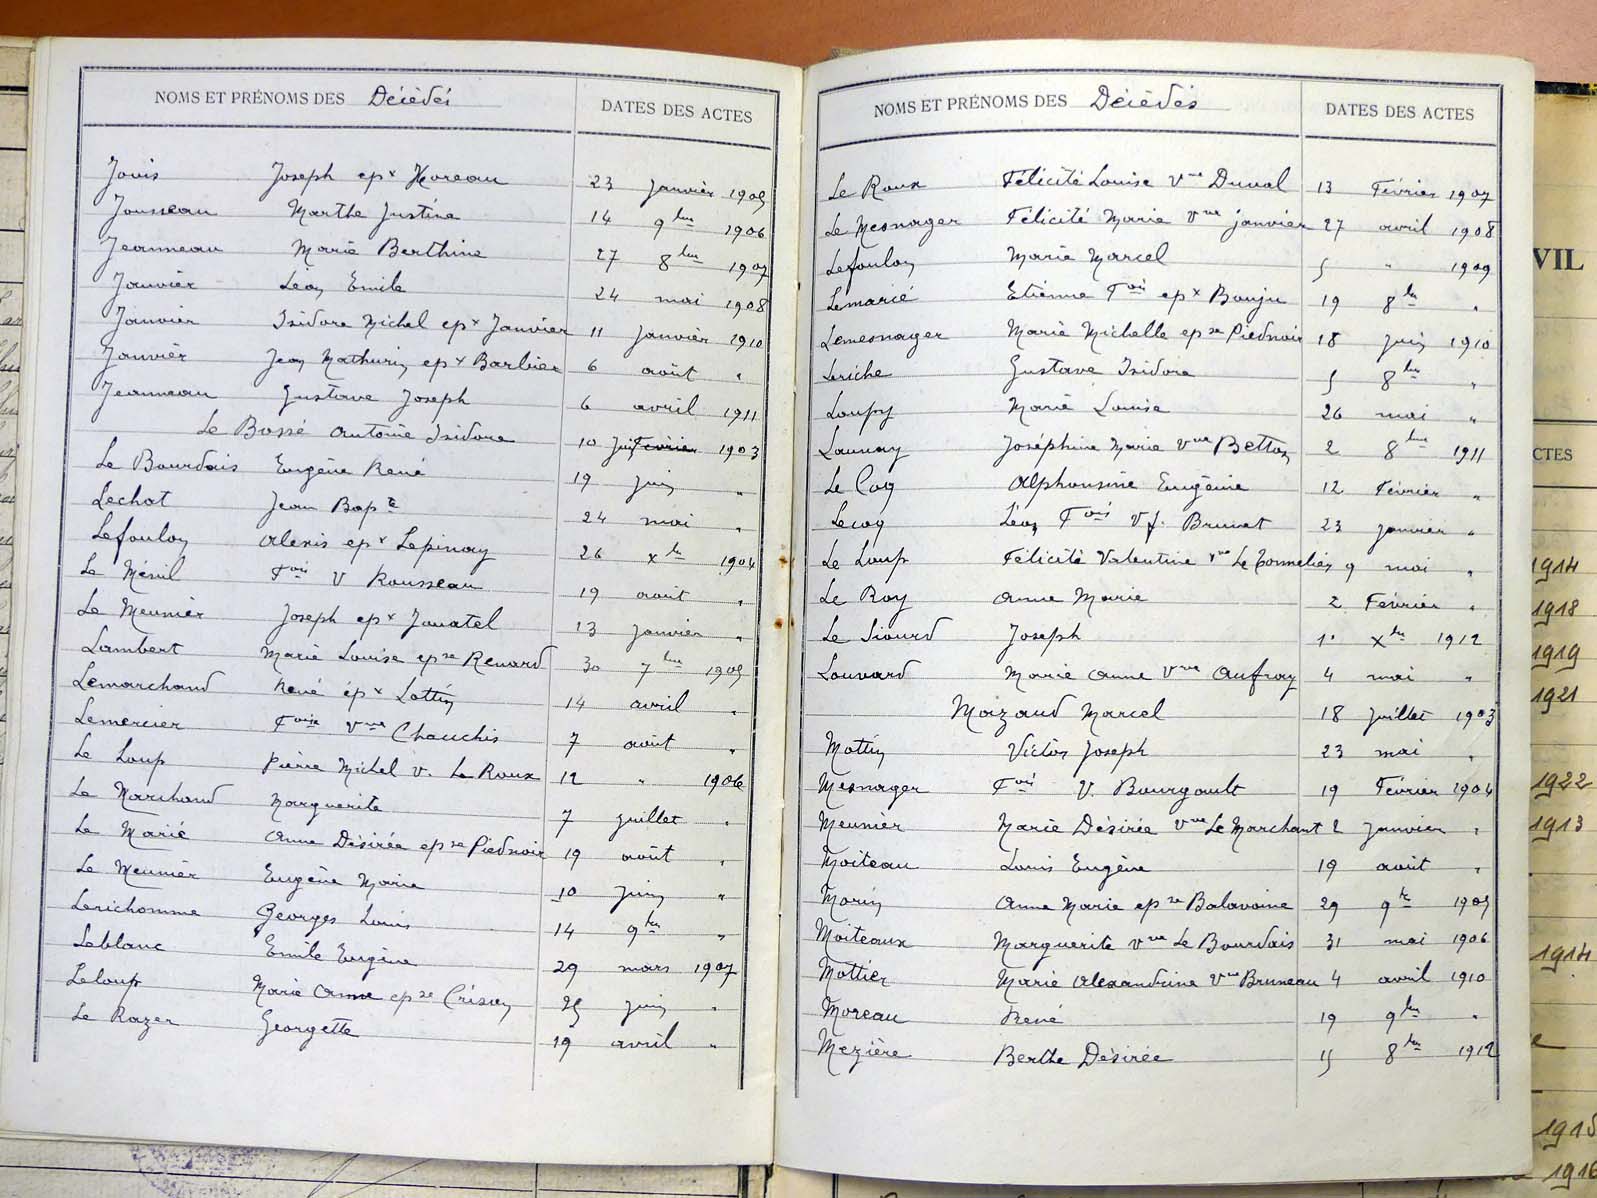 NOMS ET PRÉNOMS DES Décédés DATES DES ACTES
Jouis Joseph epx Horeau 23 Janvier 1905
Jousseau Marthe Justine 14 9bre 1906
Jeanneau Marie Berthine 27 8bre 1907
Janvier Léon Emile 24 mai 1908
Janvier Isidore Michel epx Janvier 11 Janvier 1910
Janvier Jean Mathurin epx Barbier 6 août "
Jeanneau Gustave Joseph 6 avril 1911
Le Bossé Antoine Isidore 10 Février 1903
Le Bourdais Eugène René 19 juin "
Lechat Jean Bapte 24 mai "
Lefoulon Alexis epx Lepinay 26 xbre 1904
Le Ménil Fois V Rousseau 19 août "
Le Meunier Joseph epx Jouatel 13 Janvier "
Lambert Marie Louise epse Renard 30 7bre 1905
Lemarchand René épx Lottin 14 avril "
Lemercier Foise Vve Chauchis 7 août "
Le Loup Pierre Michel v. Le Roux 12 " 1906
Le Marchand Marguerite 7 juillet "
Le Marié Anne Désirée epse Piednoir 19 août "
Le Meunier Eugène Marie 10 juin "
Lerichomme Georges Louis 14 9bre "
Leblanc Emile Eugène 29 mars 1907
Leloup Marie Anne epse 25 juin "
Le Razer Georgette 19 avril "
NOMS ET PRÉNOMS DES Décédés DATES DES ACTES
Le Roux Félicité Louise Vve Duval 13 Février 1907
Le Mesnager Félicité Marie Vve Janvier 27 avril 1908
Lefoulon Marie Marcel 5 " 1909
Lemarié Etienne Fois epx Bouju 19 8bre "
Lemesnager Marie Michelle epse Piednoir 18 juin 1910
Leriche Gustave Isidore 5 8bre "
Loupy Marie Louise 26 mai "
Launay Joséphine Marie Vve Betton 2 8bre 1911
Le Coq Alphonsine Eugénie 12 Février "
Lecoq Léon Fois Vf. Brunet 23 Janvier "
Le Loup Félicité Valentine vve Le Tonnelier 9 mai "
Le Roy Anne Marie 2 Février "
Le Siourd Joseph 1° Xbre 1912
Louvard Marie Anne Vve Aufray 4 mai "
Mazaud Marcel 18 Juillet 1903
Mottin Victor Joseph 23 mai "
Mesnager Fois V. Bourgault 19 Février 1904
Meunier Marie Désirée Vve Le Marchant 2 Janvier "
Moiteau Louis Eugène 19 août "
Morin Anne Marie epse Balavoine 29 9bre 1905
Moiteaux Marguerite vve Le Bourdais 31 mai 1906
Mottier Marie Alexandrine Vve Bruneau 4 avril 1910
Moreau René 19 9bre "
Mezière Berthe Désirée 15 8bre 1912
VIL
CTES
1914
1918
1919
1921
1922
1913
1914
1915
1916